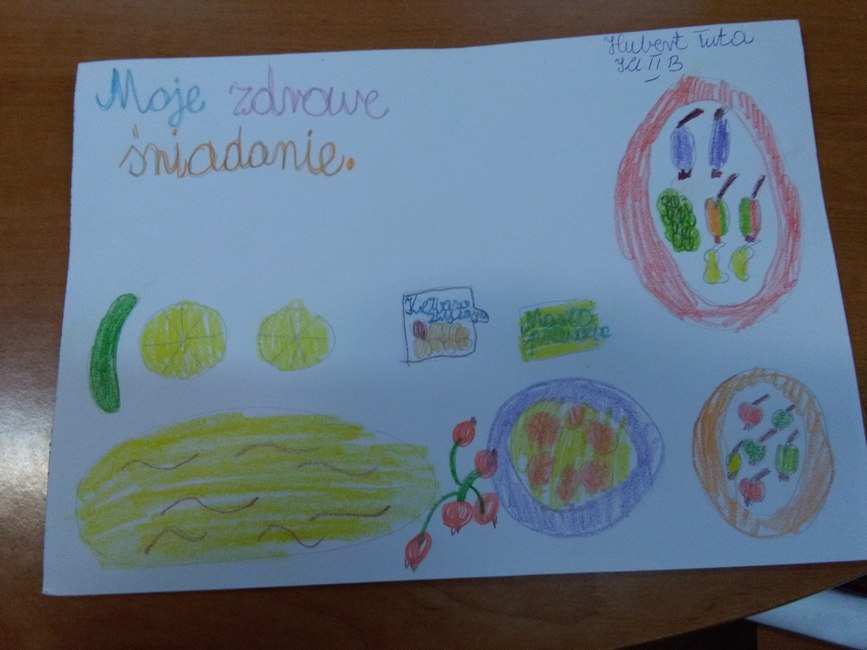 Hubert Tuta
Kl II B
Moje zdrowe
śniadanie.
Masło